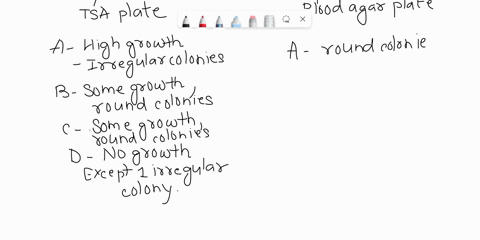 TSA plate
A - High growth
- Irregular colonies
B - Some growth,
round colonies
C - Some growth,
round colonies
D - No growth
Except 1 irregular
colony.
Blood agar plate
A - round colonie